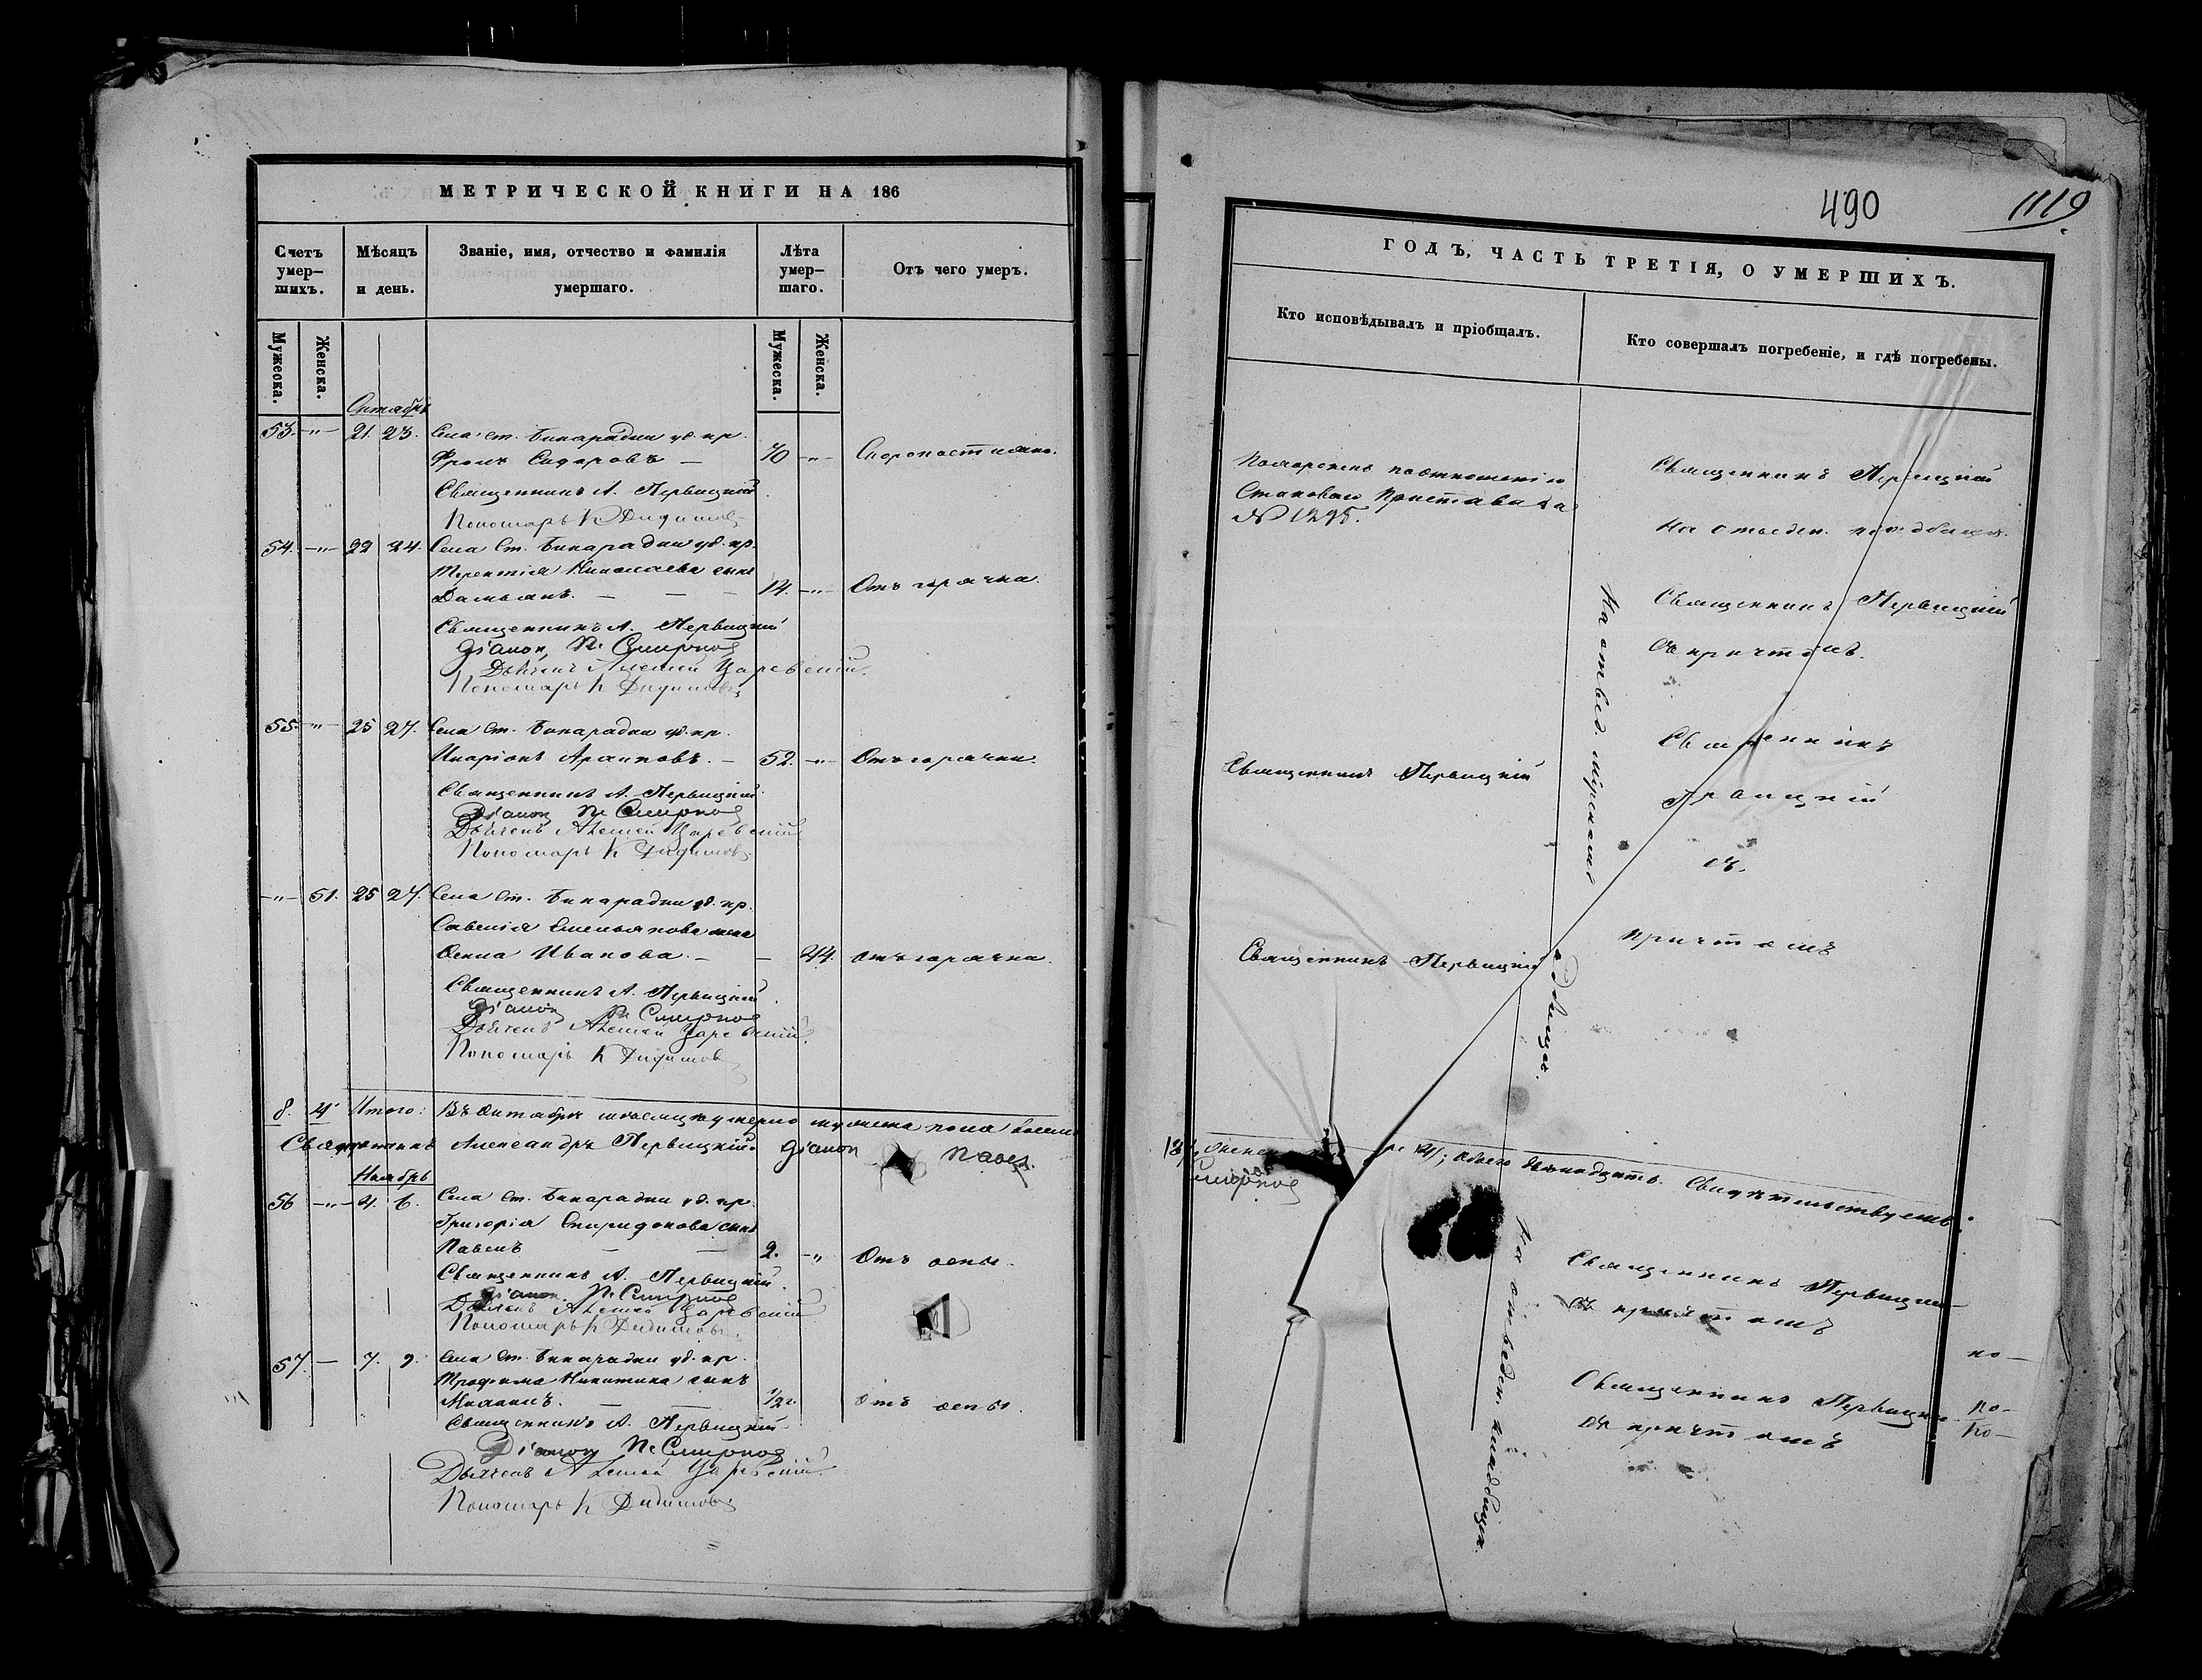 МЕТРИЧЕСКОЙ КНИГИ НА 186
Счетъ умер-шихъ.
Мѣсяцъ и день.
Званіе, имя, отчество и фамилія умершаго.
Лѣта умер-шаго.
Отъ чего умеръ.
Мужеска.
Женска.
Мужеска.
Женска.
Октябрь
53. -"- 21. 23. Села Ст. Бинарадки уд. кр.
Фролъ Сидоровъ — 70 -"- Скоропостижно.
Священникъ А. Первицкій
Пономарь К Дидимовъ
54. -"- 22 24. Села Ст. Бинарадки уд. кр.
Терентія Николаева сынъ
Дамьянъ. — — — 14. -"- Отъ горячки.
Священникъ А. Первицкій
Діаконъ П. Смирновъ
Дьячекъ Алексѣй Царевскій.
Пономарь К Дидимовъ
55. -"- 25 27. Села Ст. Бинарадки уд. кр.
Иларіонъ Архиповъ. — 52. -"- Отъ горячки.
Священникъ А. Первицкій
Діаконъ П. Смирновъ
Дьячекъ Алексѣй Царевскій
Пономарь К Дидимовъ
-"- 51. 25 27. Села Ст. Бинарадки уд. кр.
Савелія Емельянова жена
Иванова. — — 44. отъ горячки.
Священникъ А. Первицкій
Діаконъ П. Смирновъ
Дьячекъ Алексѣй Царевскій.
Пономарь К Дидимовъ
8. 4. Итого: Въ Октябрѣ мѣсяцѣ умерло мужеска пола восемь
Священникъ Александръ Первицкій. Діаконъ Павел
Ноябрь
56 -"- 4. 6. Села Ст. Бинарадки уд. кр.
Григорія Спиридонова сынъ
Павелъ — — 2. -" Отъ оспы.
Священникъ А. Первицкій.
Діаконъ П. Смирновъ
Дьячекъ Алексѣй Царевскій
Пономарь К Дидимовъ.
57. — 7. 9. Села Ст. Бинарадки уд. кр.
Трофима Никитина сынъ
Михаилъ. — — 1/2 г. отъ оспы.
Священникъ А. Первицкій
Діаконъ П. Смирновъ
Дьячекъ Алексѣй Царевскій.
Пономарь К Дидимовъ
490
1119
ГОДЪ, ЧАСТЬ ТРЕТІЯ, О УМЕРШИХЪ.
Кто исповѣдывалъ и пріобщалъ.
Кто совершалъ погребеніе, и гдѣ погребены.
Похороненъ по отношенію
Становаго Пристава за
№ 1295.
Священникъ Первицкій
На отведен. кладбищѣ.
Священникъ Первицкій
Съ причтомъ.
На отвед. приходск.
кладбищѣ.
Священникъ Первицкій
Священникъ
Троицкій
съ
причтомъ
Священникъ Первицкій
обоего двѣнадцать. Свидѣтельствуемъ:
Смирновъ
Священникъ Первицкій
съ причтомъ
Священникъ Первицкій
съ причтомъ
На отведен. кладбищѣ.
по—
по—
по—